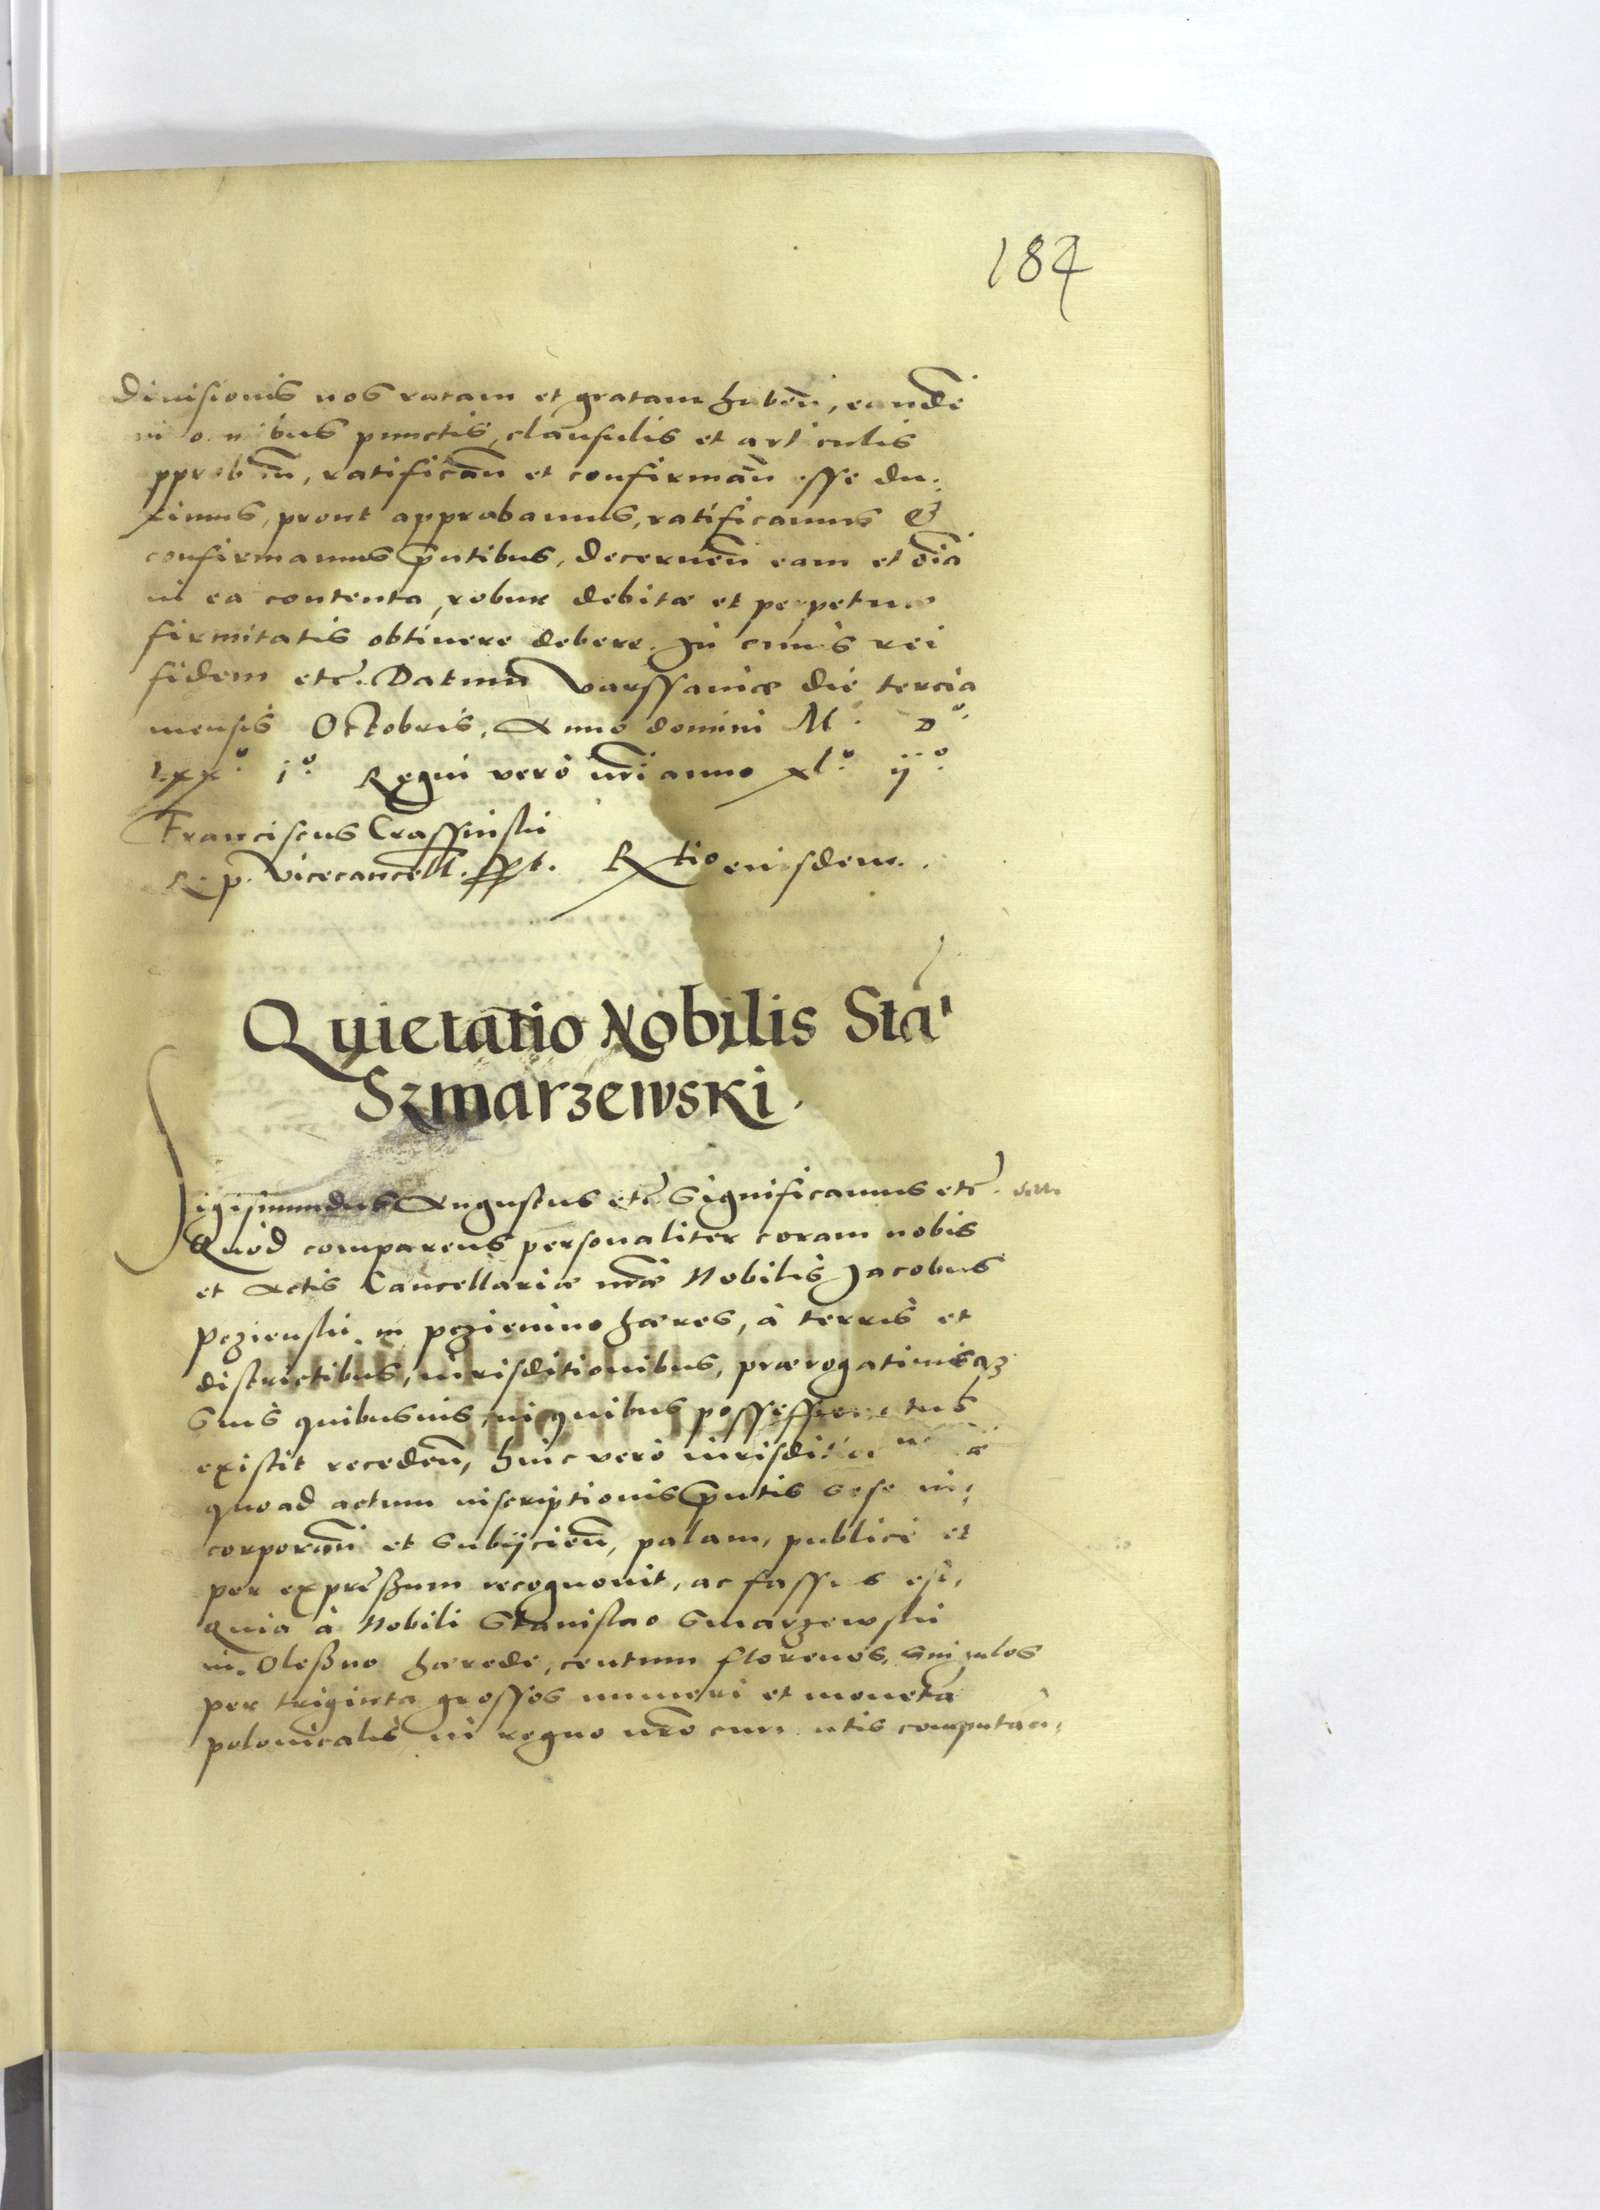 184
divisionis nos ratam et gratam haben̄, eandē
in omnibus punctis, clausulis et articulis
approban̄, ratifican̄ et confirman̄ esse du:
ximus, prout approbamus, ratificamus &
confirmamus p̄ntibus, decernen̄ eam et oīa
in ea contenta, robur debitæ et perpetuæ
firmitatis obtinere debere. In cuius rei
fidem etc̄. Datum Varssaviæ die tercia
mensis Octobris, Anno domini Mº. Dº.
Lxxº. iº. Regni verò nr̄i anno xlº. ijº.
Franciscus Crassinski
R. p. Vicecancell. sspt. Rtio eiusdem.
Quietatio Nobilis Sta'
Szmarzewski.
Sigismundus Augustus etc̄. Significamus etc̄.
Quod comparens personaliter coram nobis
et Actis Cancellariæ nr̄æ Nobilis Jacobus
Pczienski in Pczienino hæres, à terris et
districtibus, iurisditionibus, prærogativisqȝ
suis quibusvis, in quibus possessionatus
existit receden̄, huic verò iurisditioni
quoad actum inscriptionis p̄ntis sese in:
corporan̄ et subijcien̄, palam, publicè et
per expreßum recognovit, ac fassus est,
Quia à Nobili Stanislao Smarzewski
in Oleßno hærede, centum florenos, singulos
per triginta grossos numeri et monetæ
polonicalis in regno nr̄o currentis computan̄,